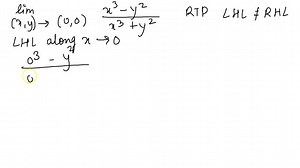 lim (x,y) → (0,0) x³ - y² / x³ + y² RTP LHL ≠ RHL
LHL along x → 0
0³ - y² / 0